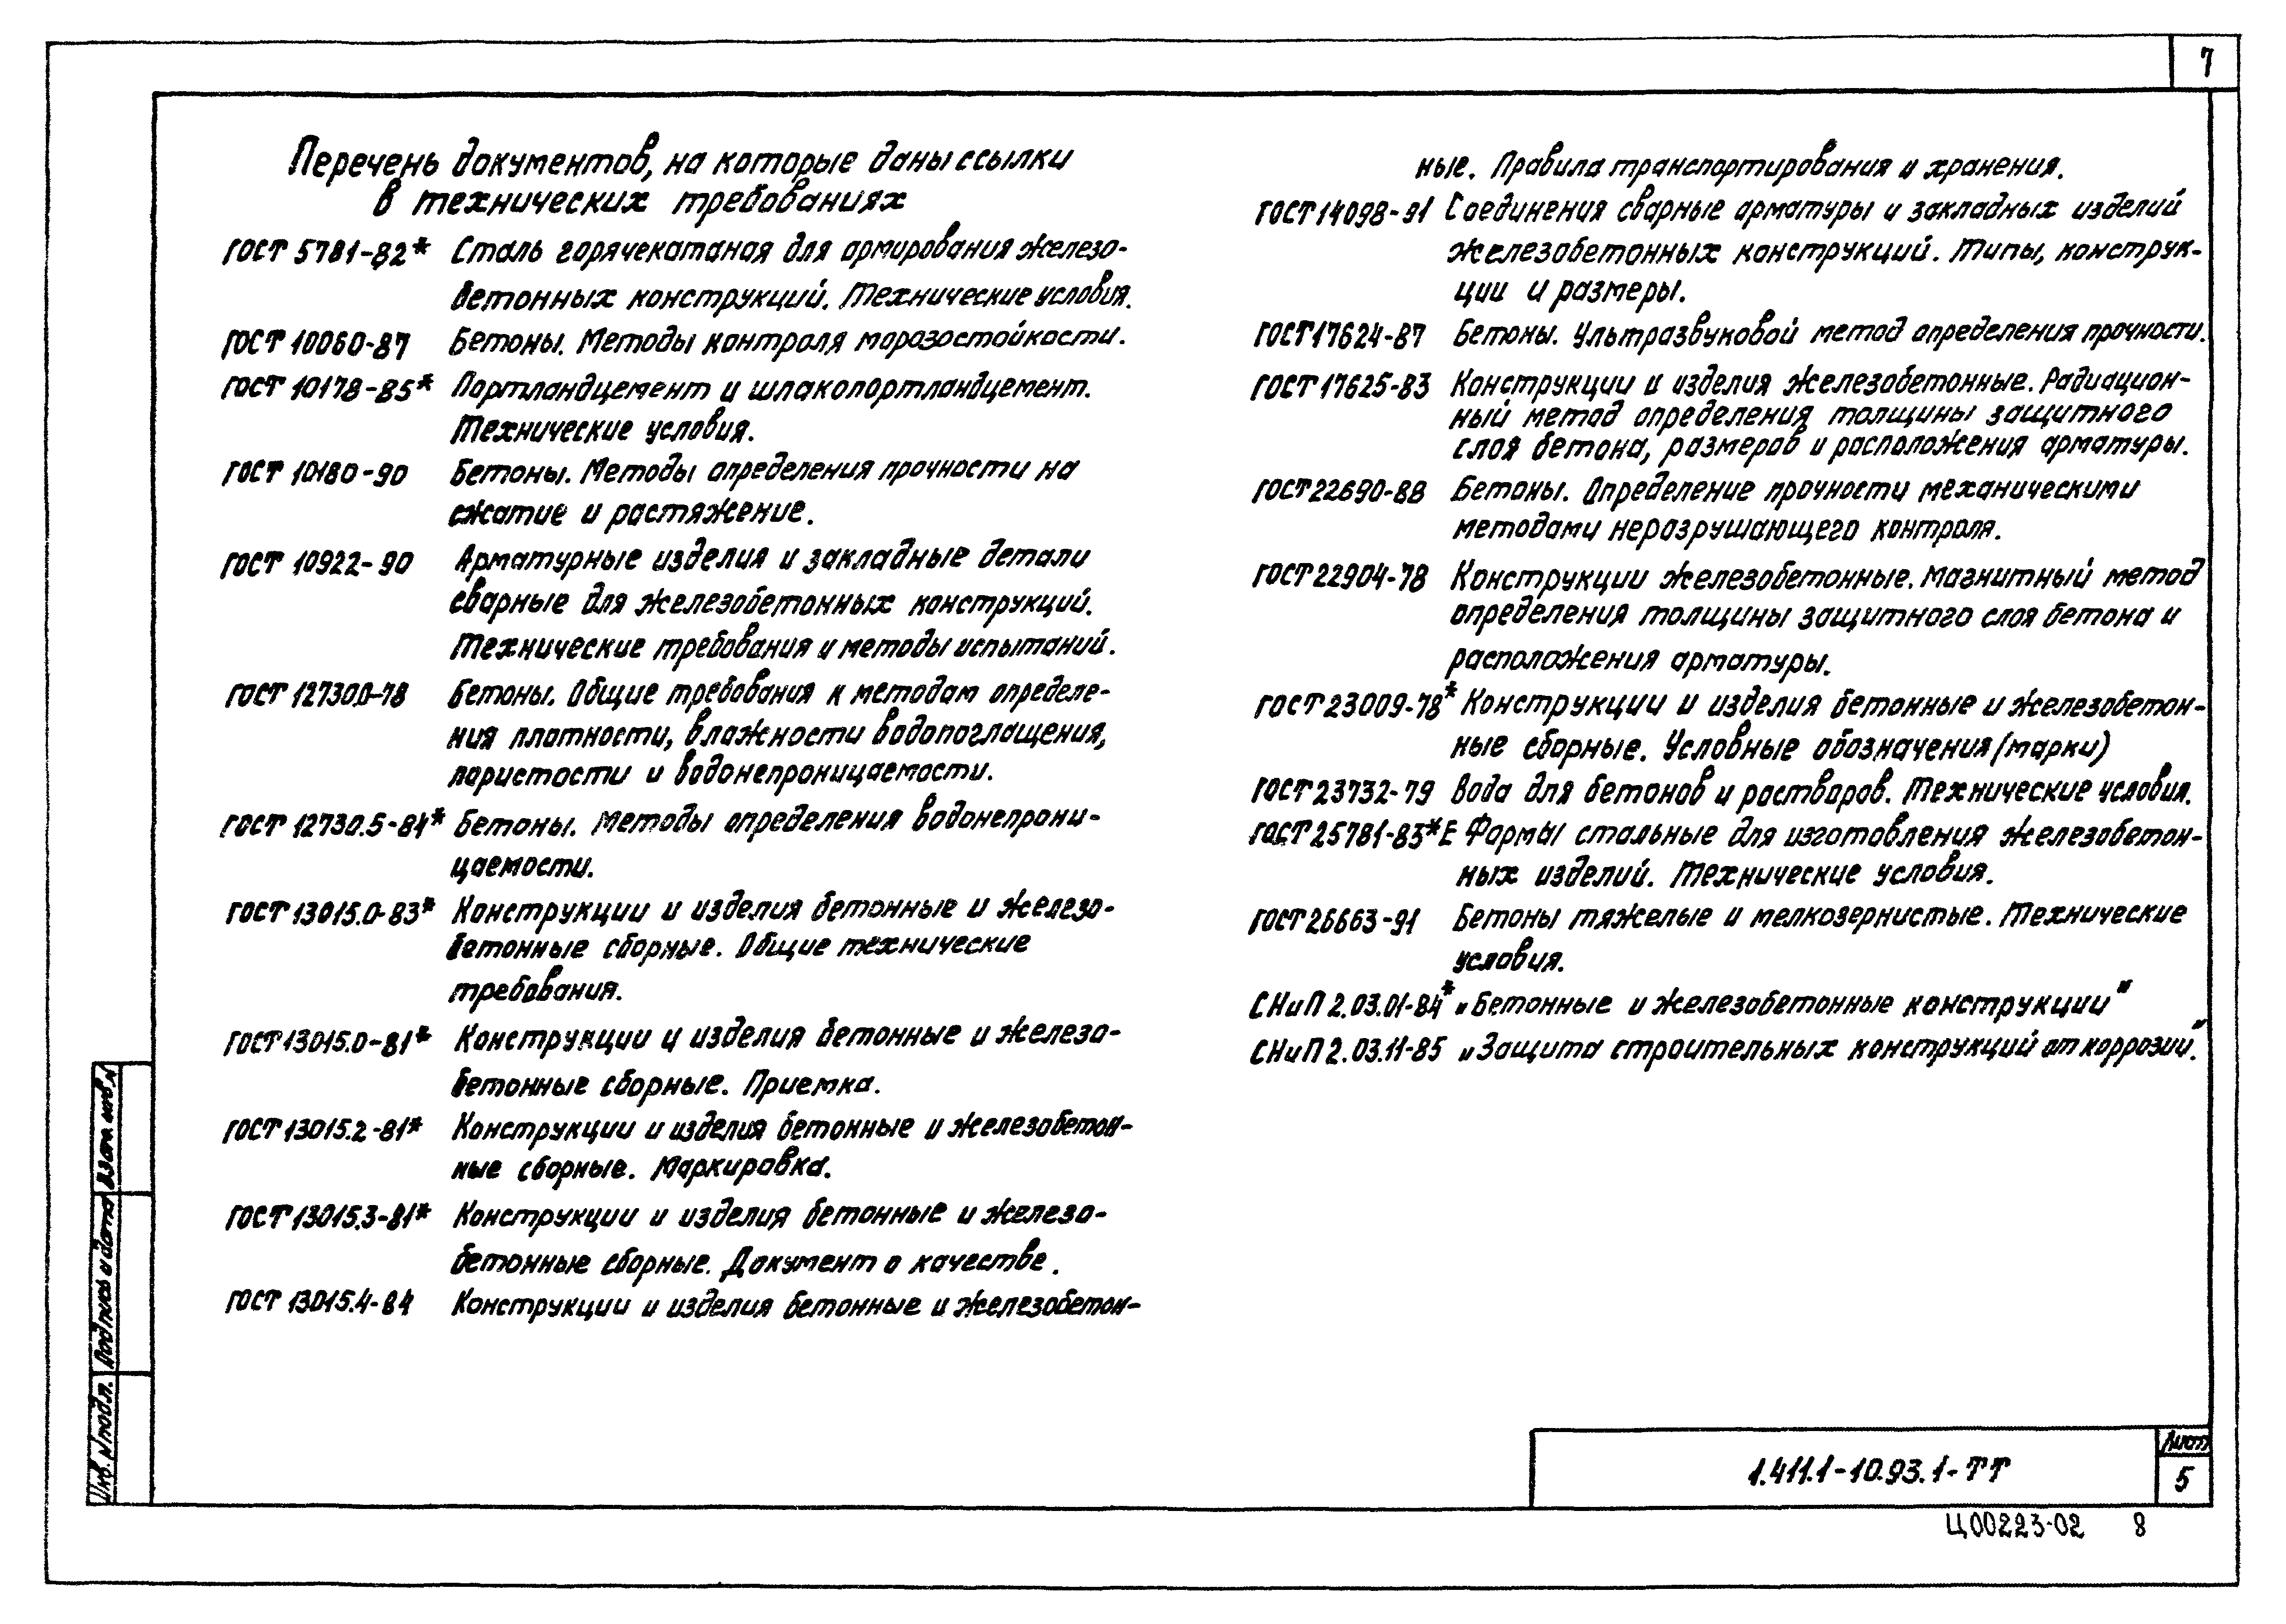 7
Перечень документов, на которые даны ссылки
в технических требованиях
ГОСТ 5781-82* Сталь горячекатаная для армирования железо-
бетонных конструкций. Технические условия.
ГОСТ 10060-87 Бетоны. Методы контроля морозостойкости.
ГОСТ 10178-85* Портландцемент и шлакопортландцемент.
Технические условия.
ГОСТ 10180-90 Бетоны. Методы определения прочности на
сжатие и растяжение.
ГОСТ 10922-90 Арматурные изделия и закладные детали
сварные для железобетонных конструкций.
Технические требования и методы испытаний.
ГОСТ 12730.0-78 Бетоны. Общие требования к методам определе-
ния плотности, влажности водопоглащения,
пористости и водонепроницаемости.
ГОСТ 12730.5-84* Бетоны. Методы определения водонепрони-
цаемости.
ГОСТ 13015.0-83* Конструкции и изделия бетонные и железо-
бетонные сборные. Общие технические
требования.
ГОСТ 13015.0-81* Конструкции и изделия бетонные и железо-
бетонные сборные. Приемка.
ГОСТ 13015.2-81* Конструкции и изделия бетонные и железобетон-
ные сборные. Маркировка.
ГОСТ 13015.3-81* Конструкции и изделия бетонные и железо-
бетонные сборные. Документ о качестве.
ГОСТ 13015.4-84 Конструкции и изделия бетонные и железобетон-
ные. Правила транспортирования и хранения.
ГОСТ 14098-91 Соединения сварные арматуры и закладных изделий
железобетонных конструкций. Типы, конструк-
ции и размеры.
ГОСТ 17624-87 Бетоны. Ультразвуковой метод определения прочности.
ГОСТ 17625-83 Конструкции и изделия железобетонные. Радиацион-
ный метод определения толщины защитного
слоя бетона, размеров и расположения арматуры.
ГОСТ 22690-88 Бетоны. Определение прочности механическими
методами неразрушающего контроля.
ГОСТ 22904-78 Конструкции железобетонные. Магнитный метод
определения толщины защитного слоя бетона и
расположения арматуры.
ГОСТ 23009-78* Конструкции и изделия бетонные и железобетон-
ные сборные. Условные обозначения (марки)
ГОСТ 23732-79 Вода для бетонов и растворов. Технические условия.
ГОСТ 25781-83*Е Формы стальные для изготовления железобетон-
ных изделий. Технические условия.
ГОСТ 26663-91 Бетоны тяжелые и мелкозернистые. Технические
условия.
СНиП 2.03.01-84* „Бетонные и железобетонные конструкции"
СНиП 2.03.11-85 „Защита строительных конструкций от коррозии."
Взам. инв. N
Подпись и дата
Инв. N подл.
1.411.1-10.93.1-ТТ
Лист
5
Ц00223-02 8